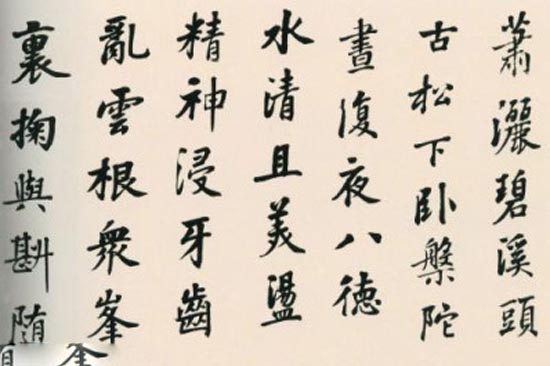 蕭灑碧溪頭
古松下臥槃陀
晝復夜八德
水清且美盪
精神浸牙齒
亂雲根衆峯
裏掬與斟随